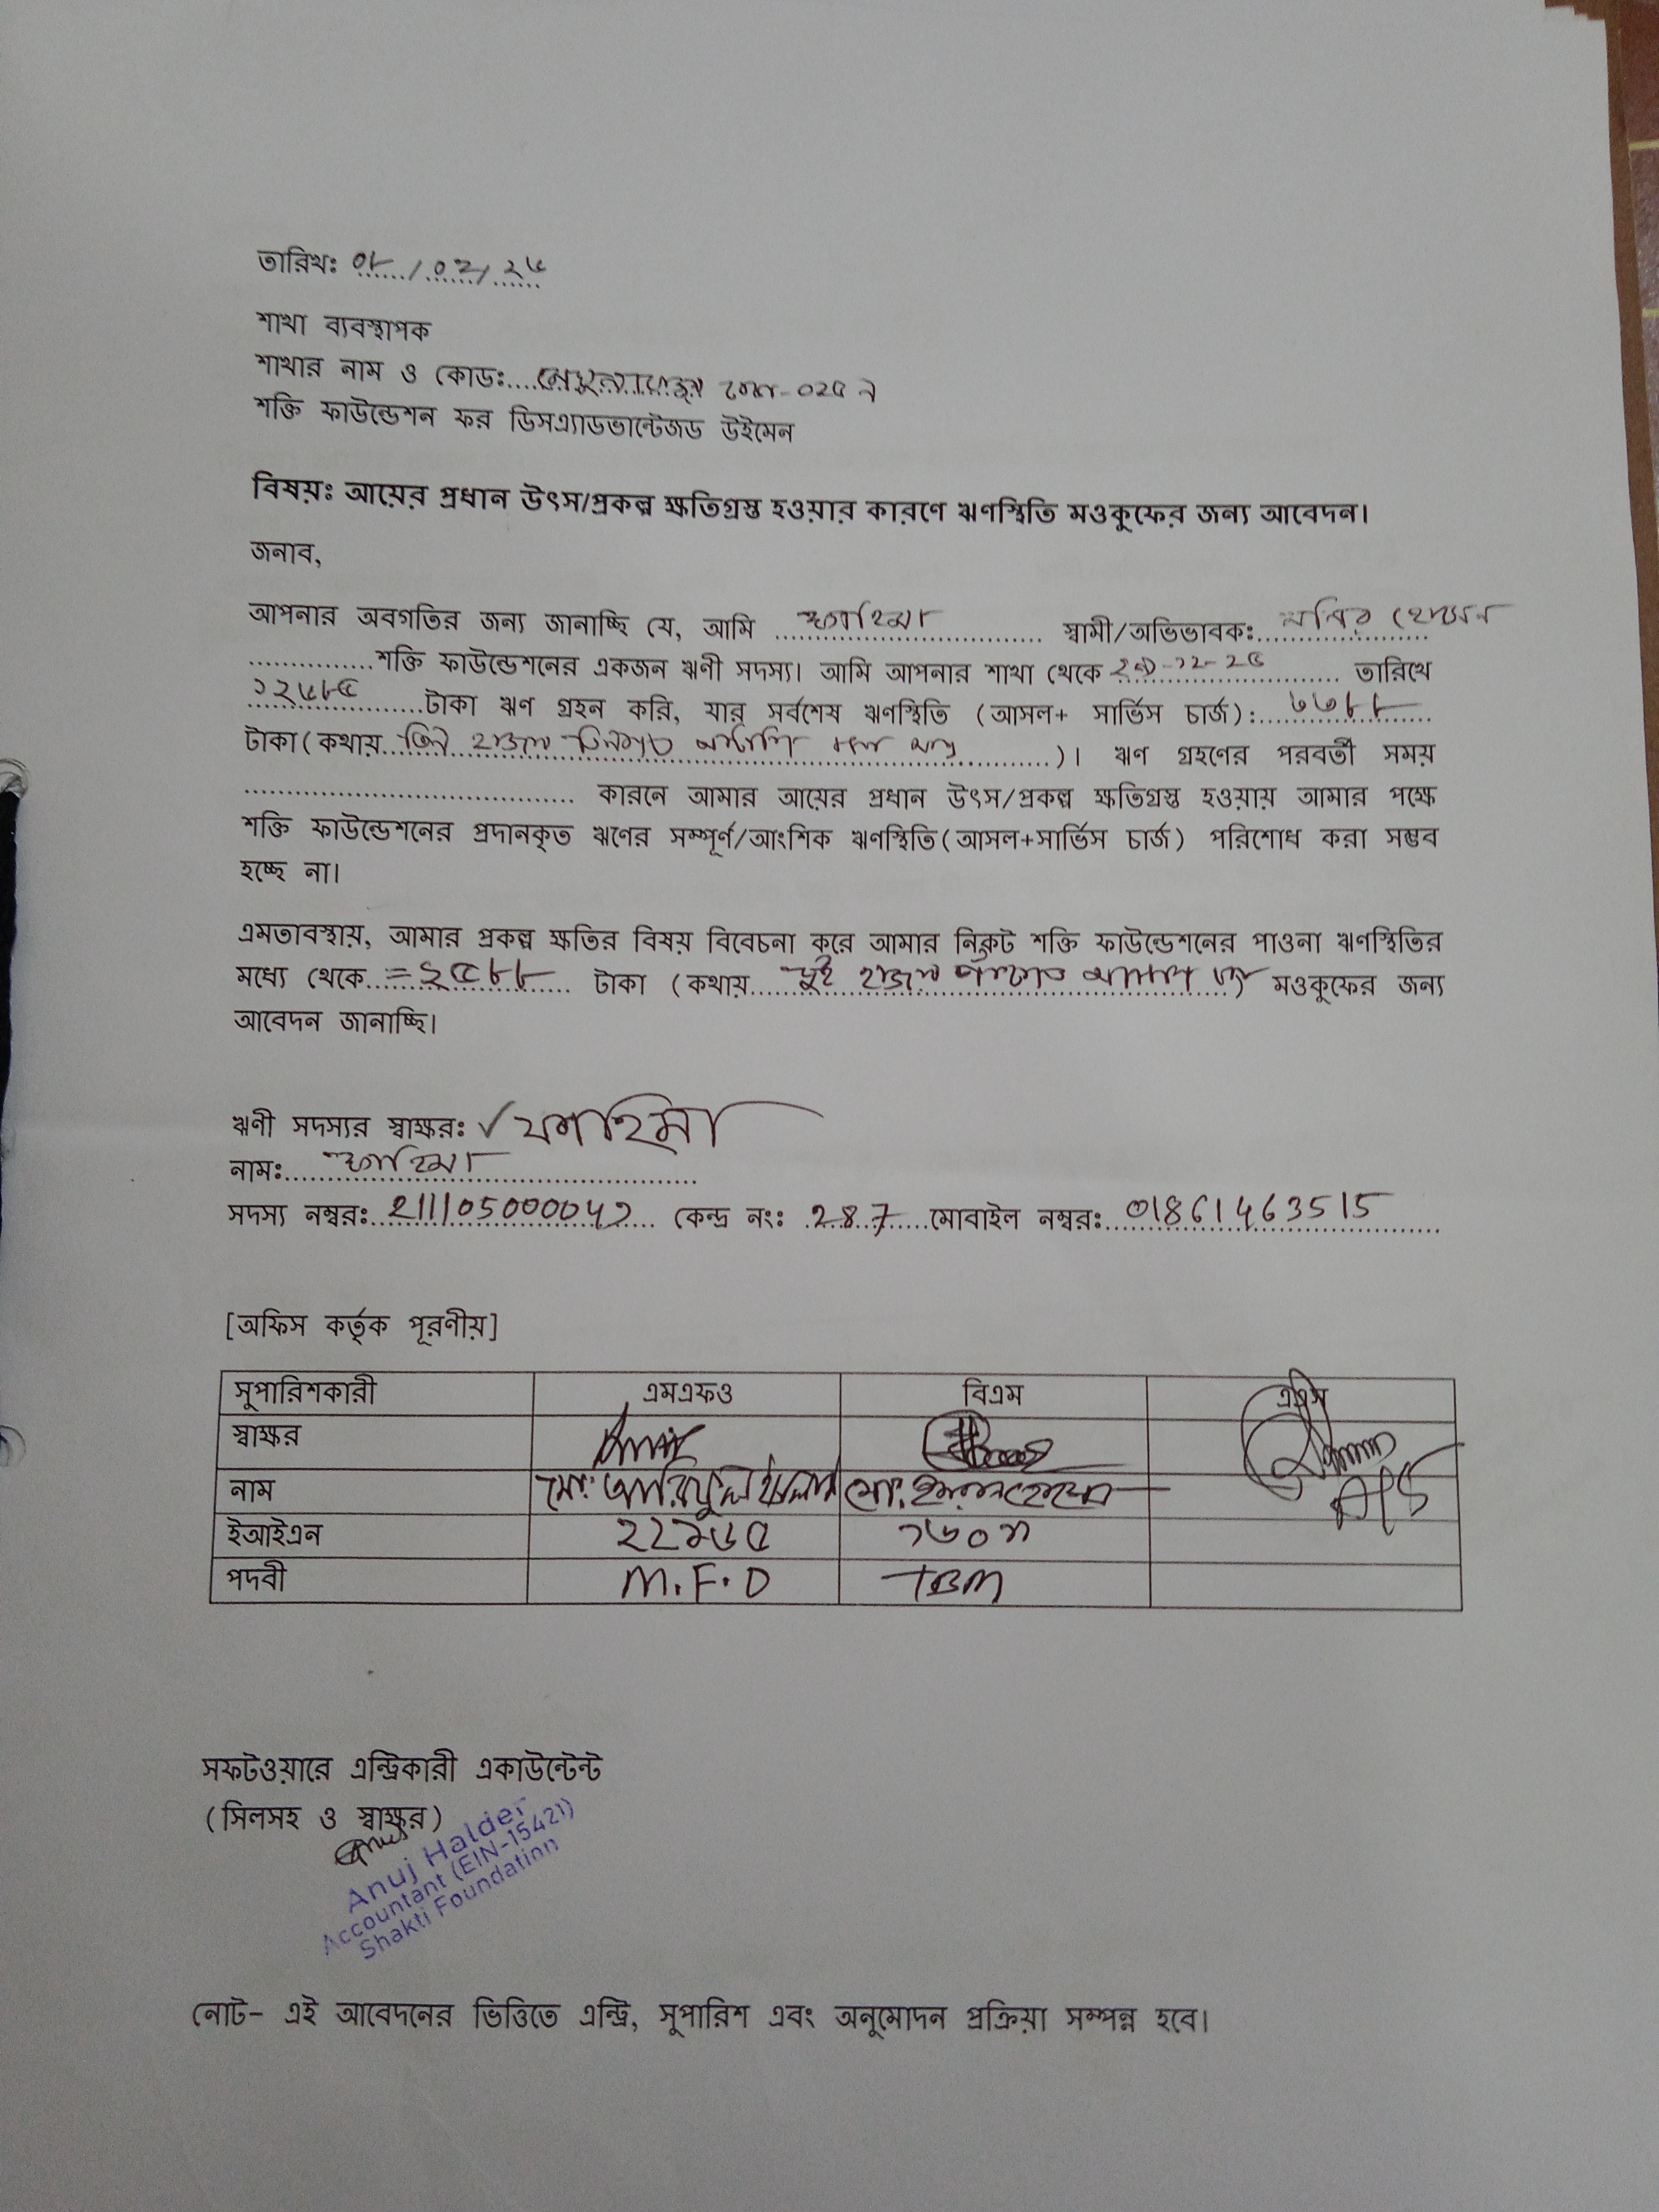 তারিখঃ ০৮/০২/২৬
শাখা ব্যবস্থাপক
শাখার নাম ও কোডঃ....
শক্তি ফাউন্ডেশন ফর ডিসএ্যাডভান্টেজড উইমেন
বিষয়ঃ আয়ের প্রধান উৎস/প্রকল্প ক্ষতিগ্রস্ত হওয়ার কারণে ঋণস্থিতি মওকুফের জন্য আবেদন।
জনাব,
আপনার অবগতির জন্য জানাচ্ছি যে, আমি ফাহিমা স্বামী/অভিভাবকঃ মনির হোসেন
শক্তি ফাউন্ডেশনের একজন ঋণী সদস্য। আমি আপনার শাখা থেকে তারিখে
টাকা ঋণ গ্রহন করি, যার সর্বশেষ ঋণস্থিতি (আসল+ সার্ভিস চার্জ): ৩৩৮৮
টাকা(কথায় তিন হাজার তিনশত )। ঋণ গ্রহণের পরবর্তী সময়
কারনে আমার আয়ের প্রধান উৎস/প্রকল্প ক্ষতিগ্রস্ত হওয়ায় আমার পক্ষে
শক্তি ফাউন্ডেশনের প্রদানকৃত ঋণের সম্পূর্ণ/আংশিক ঋণস্থিতি(আসল+সার্ভিস চার্জ) পরিশোধ করা সম্ভব
হচ্ছে না।
এমতাবস্থায়, আমার প্রকল্প ক্ষতির বিষয় বিবেচনা করে আমার নিকট শক্তি ফাউন্ডেশনের পাওনা ঋণস্থিতির
মধ্যে থেকে =২৫৮৮ টাকা (কথায় দুই হাজার পাঁচশত ) মওকুফের জন্য
আবেদন জানাচ্ছি।
ঋণী সদস্যর স্বাক্ষরঃ ✓ ফাহিমা
নামঃ ফাহিমা
সদস্য নম্বরঃ কেন্দ্র নংঃ 287 মোবাইল নম্বরঃ 01861463515
[অফিস কর্তৃক পূরণীয়]
সুপারিশকারী এমএফও বিএম এএস
স্বাক্ষর
নাম মো: আরিফুল ইসলাম
ইআইএন
পদবী M.F.O TBM
সফটওয়ারে এন্ট্রিকারী একাউন্টেন্ট
(সিলসহ ও স্বাক্ষর)
Anuj Halder
Accountant (EIN-15421)
Shakti Foundation
নোট- এই আবেদনের ভিত্তিতে এন্ট্রি, সুপারিশ এবং অনুমোদন প্রক্রিয়া সম্পন্ন হবে।